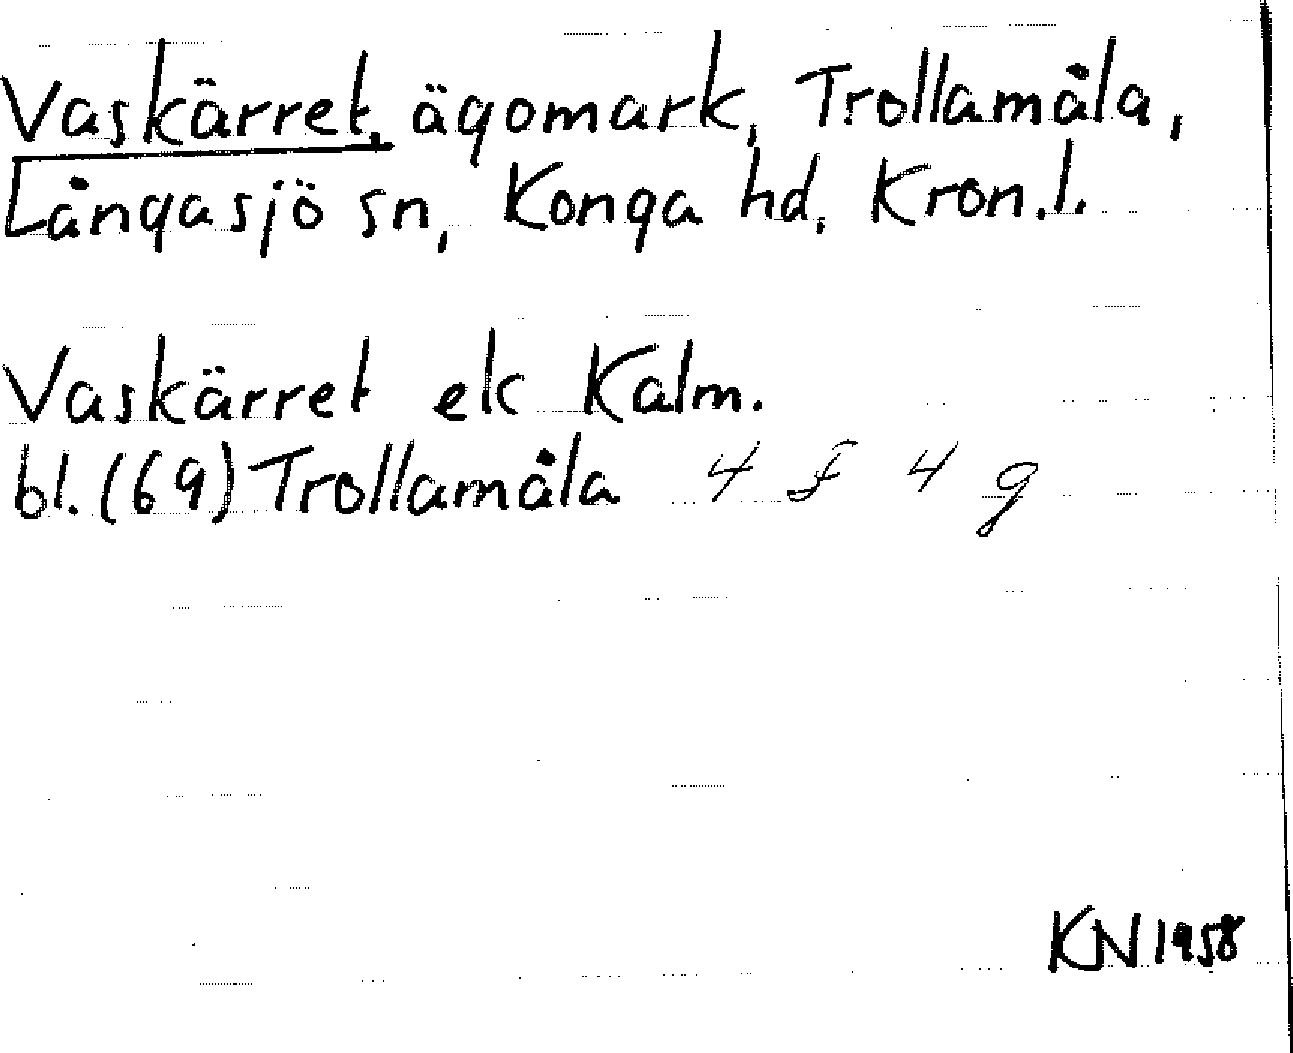 Vaskärret, ägomark, Trollamåla,
Långasjö sn, Konga hd, Kron.l.
Vaskärret ek Kalm.
bl. (69) Trollamåla 4 f 4 g
KN 1958